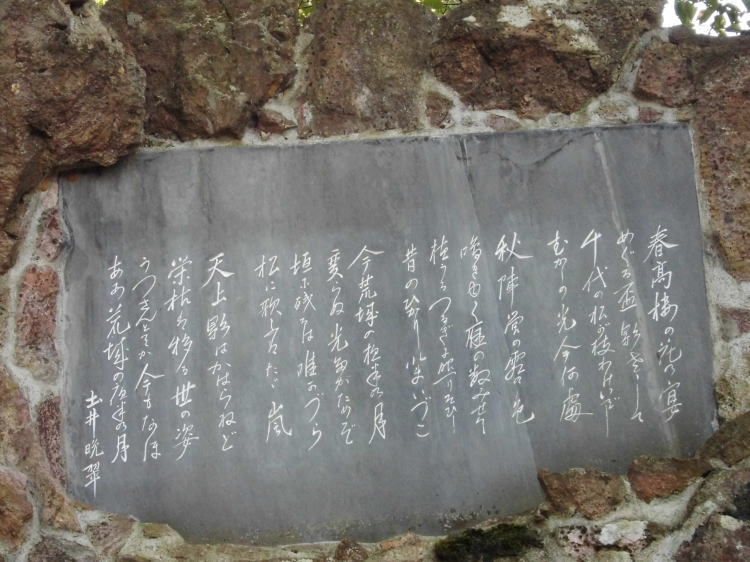 春高楼の花の宴
めぐる盃影さして
千代の松が枝わけいでし
むかしの光今何處
秋陣営の霜の色
鳴き行く雁の数みせて
植うるつるぎに照りそひし
昔のひかりいまいづこ
今荒城の夜半の月
変らぬ光たがためぞ
垣に残るは唯かづら
松に歌ふはたゞ嵐
天上影はかはらねど
栄枯は移る世の姿
うつさんとてか今もなほ
ああ荒城の夜半の月
土井晩翠